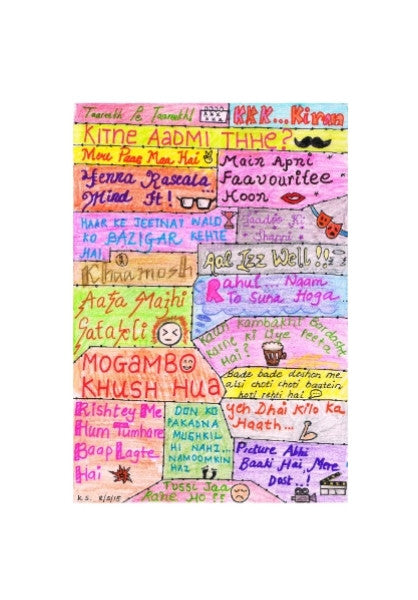 Taareekh Pe Taareekh!
KKK...Kiran
KITNE AADMI THHE?
Mere Paas Maa Hai
Main Apni
Faavouritee
Hoon
Yenna Rascala
Mind It!
HAAR KE JEETNAY WALO
KO BAZIGAR KEHTE
HAI
Khaamosh
Aal Izz Well!!
Rahul... Naam
To Suna Hoga
Aata Majhi
Satakli
Kaun Kambakht Bardasht
Karne Ki Liye Peeta
Hai?
MOGAMBO
KHUSH HUA
Bade bade deshon me
aisi choti choti baatein
hoti rehti hai
Rishtey Me
Hum Tumhare
Baap Lagte
Hai
DON KO
PAKADNA
MUSHKIL
HI NAHI...
NAMOOMKIN
HAI
Yeh Dhai Kilo Ka
Haath...
Picture Abhi
Baaki Hai, Mere
Dost..!
Tussi Jaa
Rahe Ho!!
K.S. 8/6/15